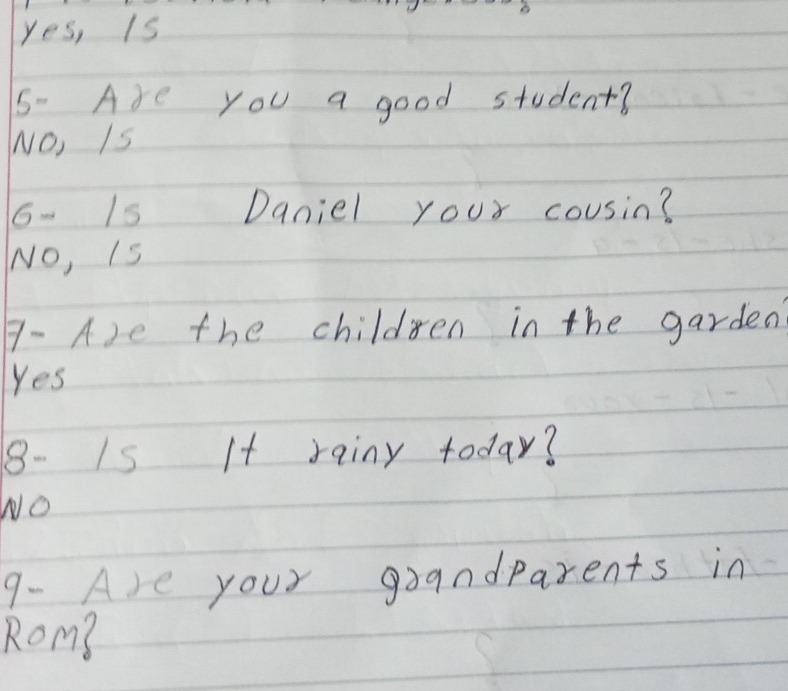 Yes, Is
5- Are you a good student?
NO, Is
6- Is Daniel your cousin?
NO, Is
7- Are the children in the garden?
Yes
8- Is It rainy today?
NO
9- Are your grandparents in
Rom?